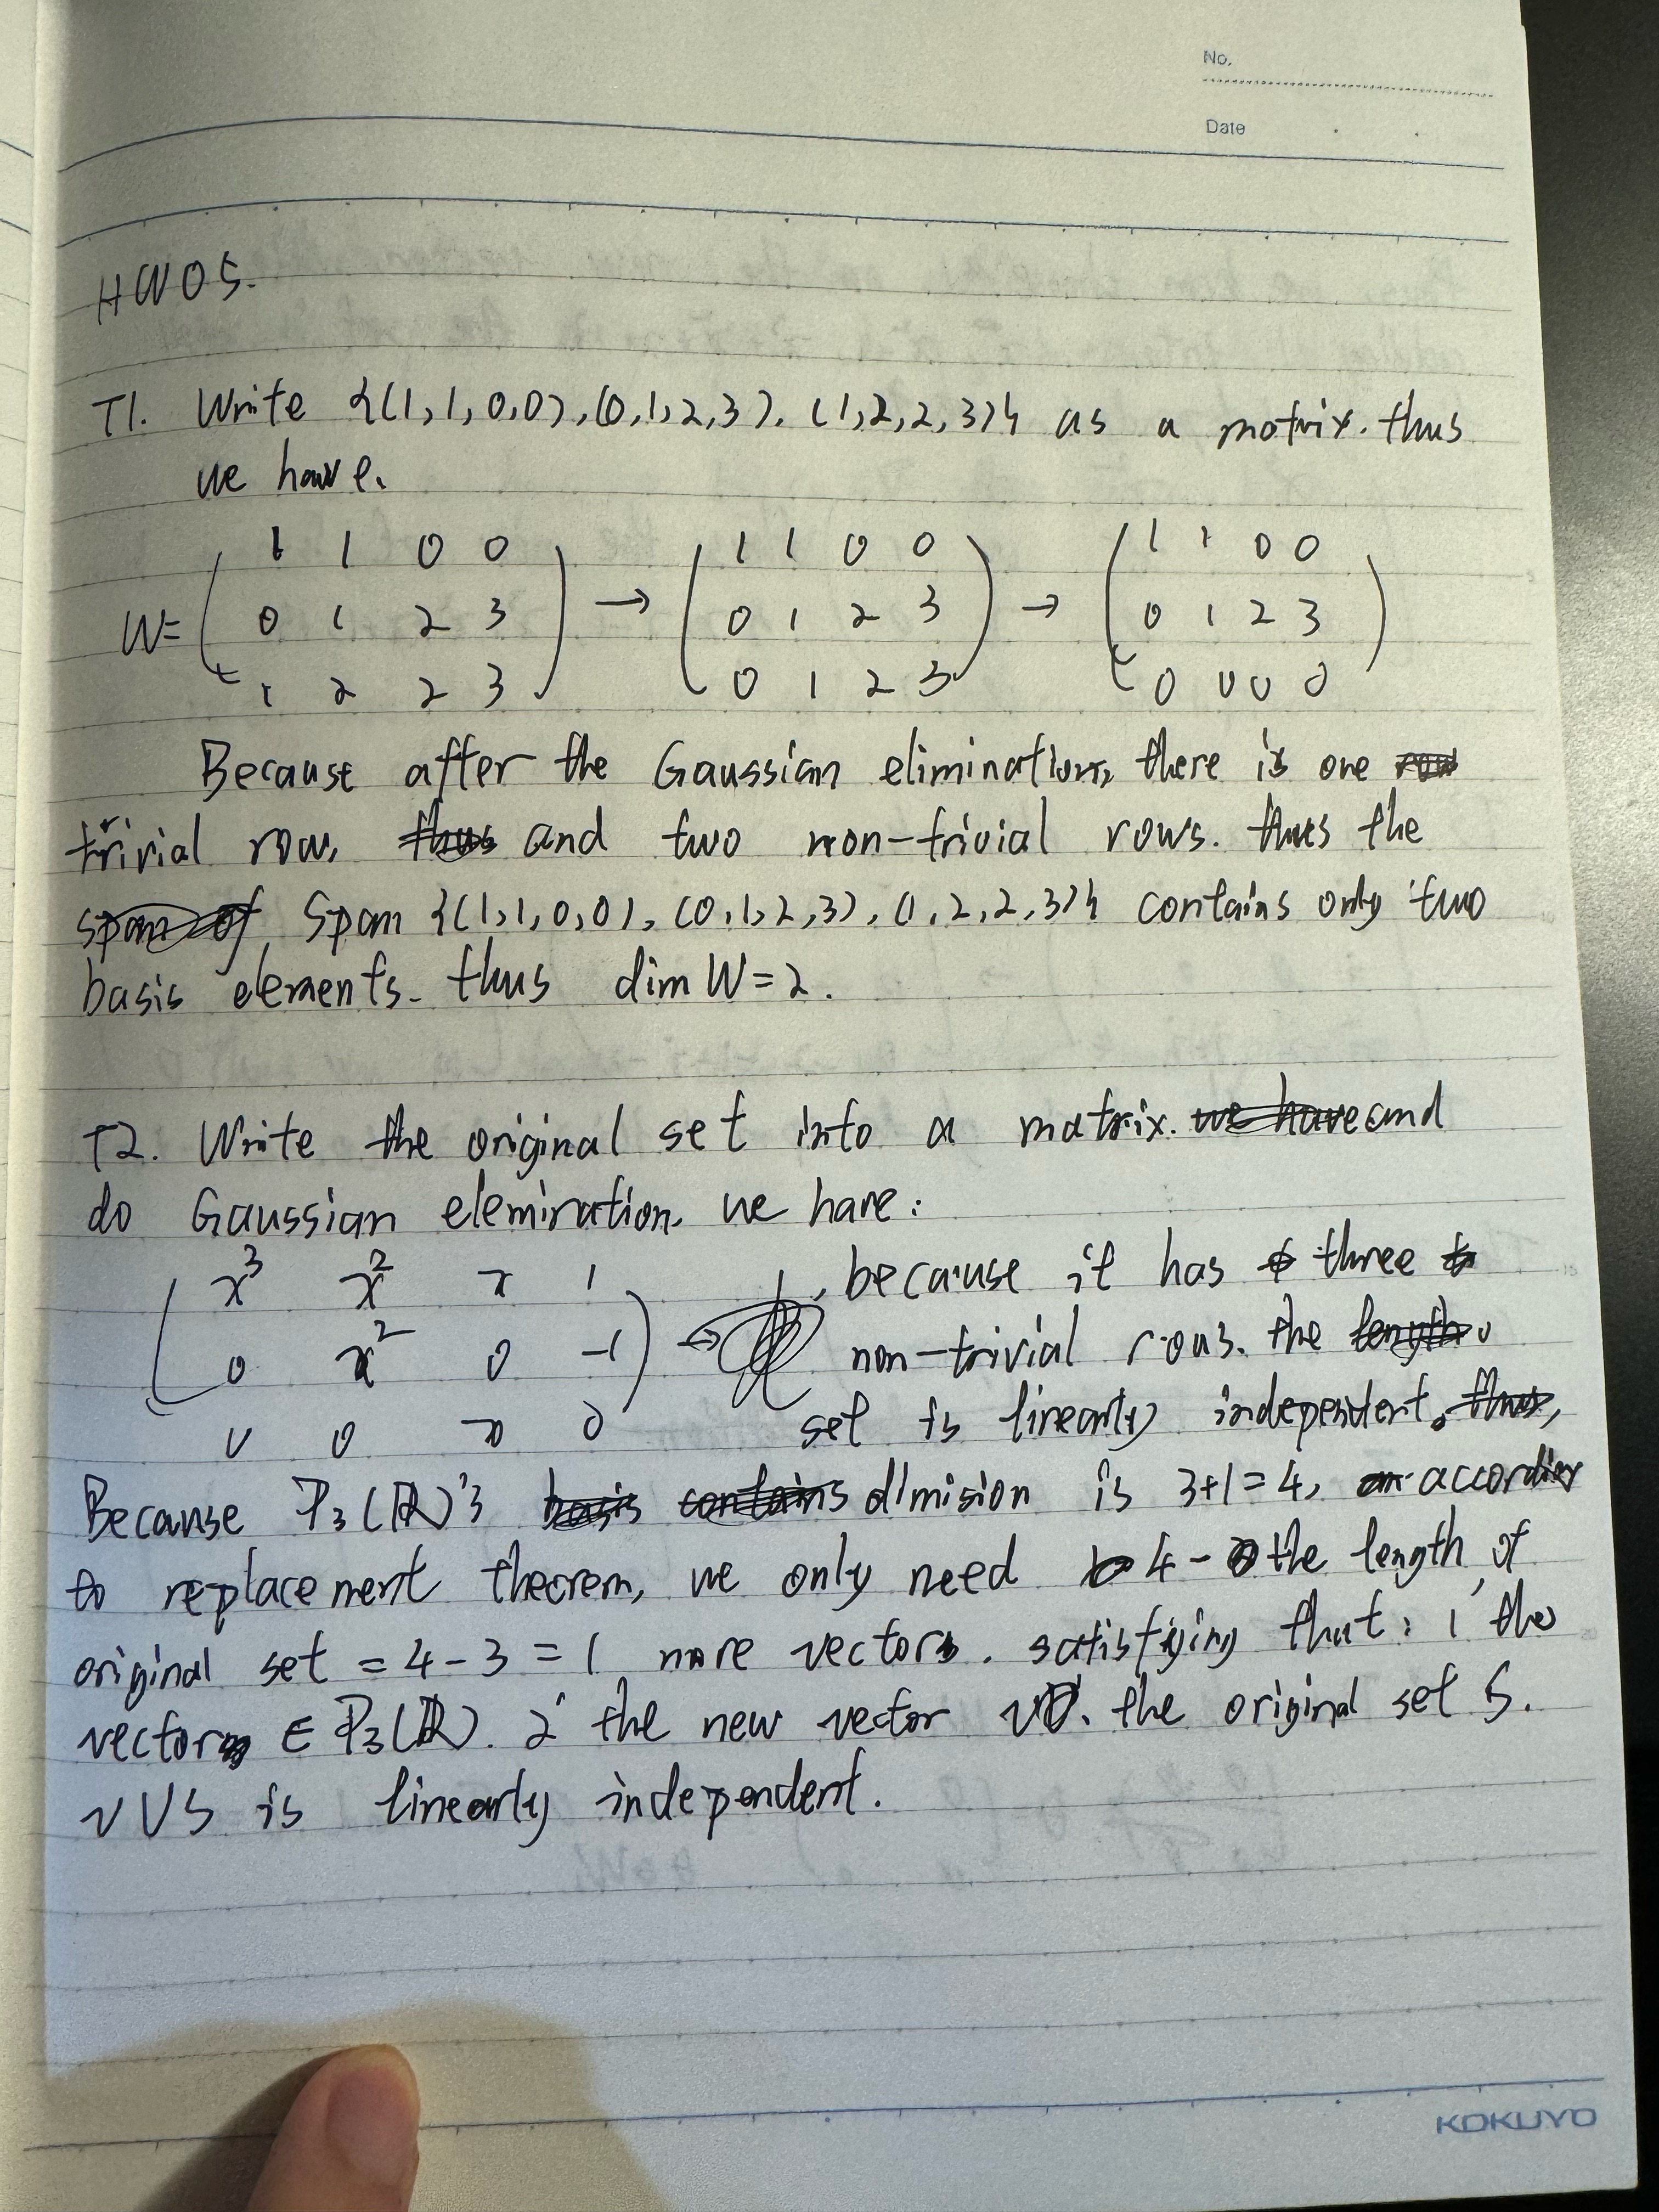 No.
Date
HW05.
T1. Write {(1,1,0,0), (0,1,2,3), (1,2,2,3)} as a matrix. thus
we have.
1 1 0 0 1 1 0 0 1 1 0 0
W= 0 1 2 3 → 0 1 2 3 → 0 1 2 3
1 2 2 3 0 1 2 3 0 0 0 0
Because after the Gaussian elimination, there is one row
trivial row, thus and two non-trivial rows. thus the
span of Span {(1,1,0,0), (0,1,2,3), (1,2,2,3)} contains only two
basis elements. thus dim W=2.
T2. Write the original set into a matrix. we have and
do Gaussian elemination, we have:
x³ x² x 1 , because it has three
0 x² 0 -1 → non-trivial rows. the length
0 0 x 0 set is linearly independent. thus,
Because P₃(R)'s basis contains dimision is 3+1=4, accordin
to replacement theorem, we only need 4 - the length of
original set = 4-3 = 1 more vectors. satisfying that: 1' the
vector ∈ P₃(R). 2' the new vector v. the original set S.
v∪S is linearly independent.
KOKUYO